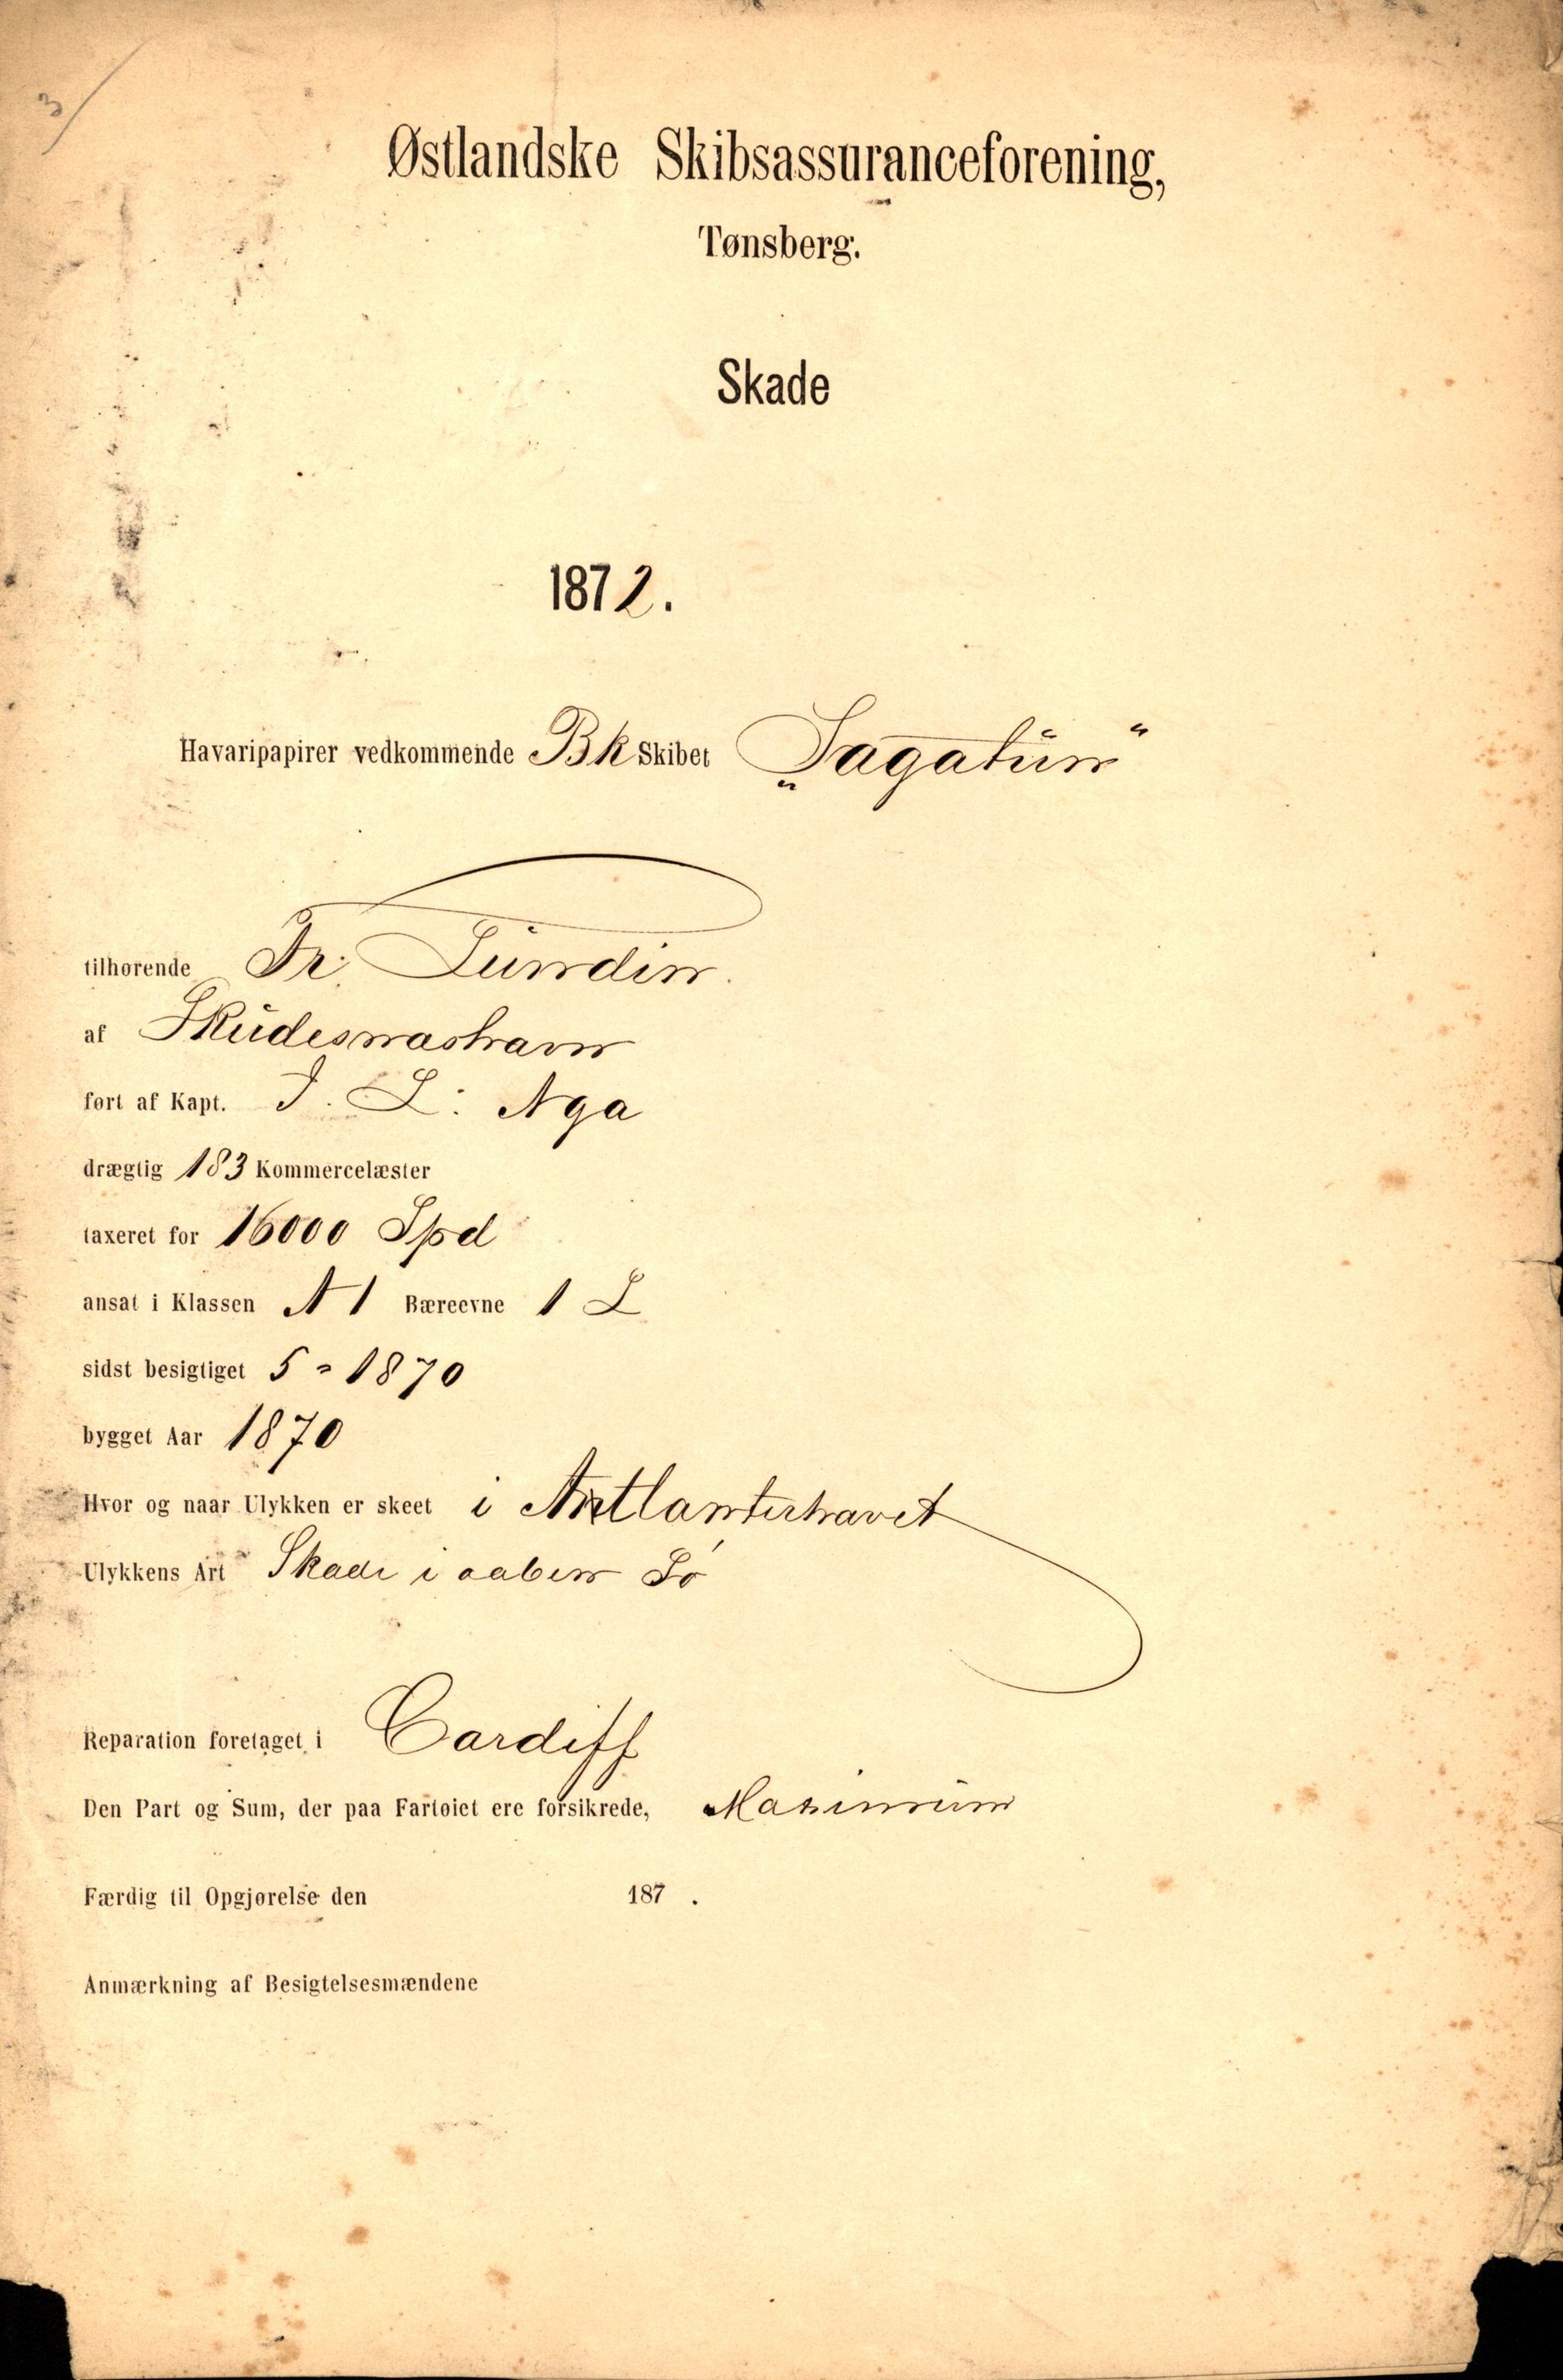 3/
Østlandske Skibsassuranceforening,
Tønsberg.
Skade
1872.
Havaripapirer vedkommende Bk Skibet „Sagatun“
tilhørende Fr. Lundin.
af Skudesnæshavn
ført af Kapt. J. L. Aga
drægtig 183 Kommercelæster
taxeret for 16000 Spd
ansat i Klassen A 1 Bæreevne 1 L
sidst besigtiget 5 - 1870
bygget Aar 1870
Hvor og naar Ulykken er skeet i Antlanterhavet
Ulykkens Art Skade i aaben Sø
Reparation foretaget i Cardiff
Den Part og Sum, der paa Fartøiet ere forsikrede, Maximum
Færdig til Opgjørelse den 187 .
Anmærkning af Besigtelsesmændene